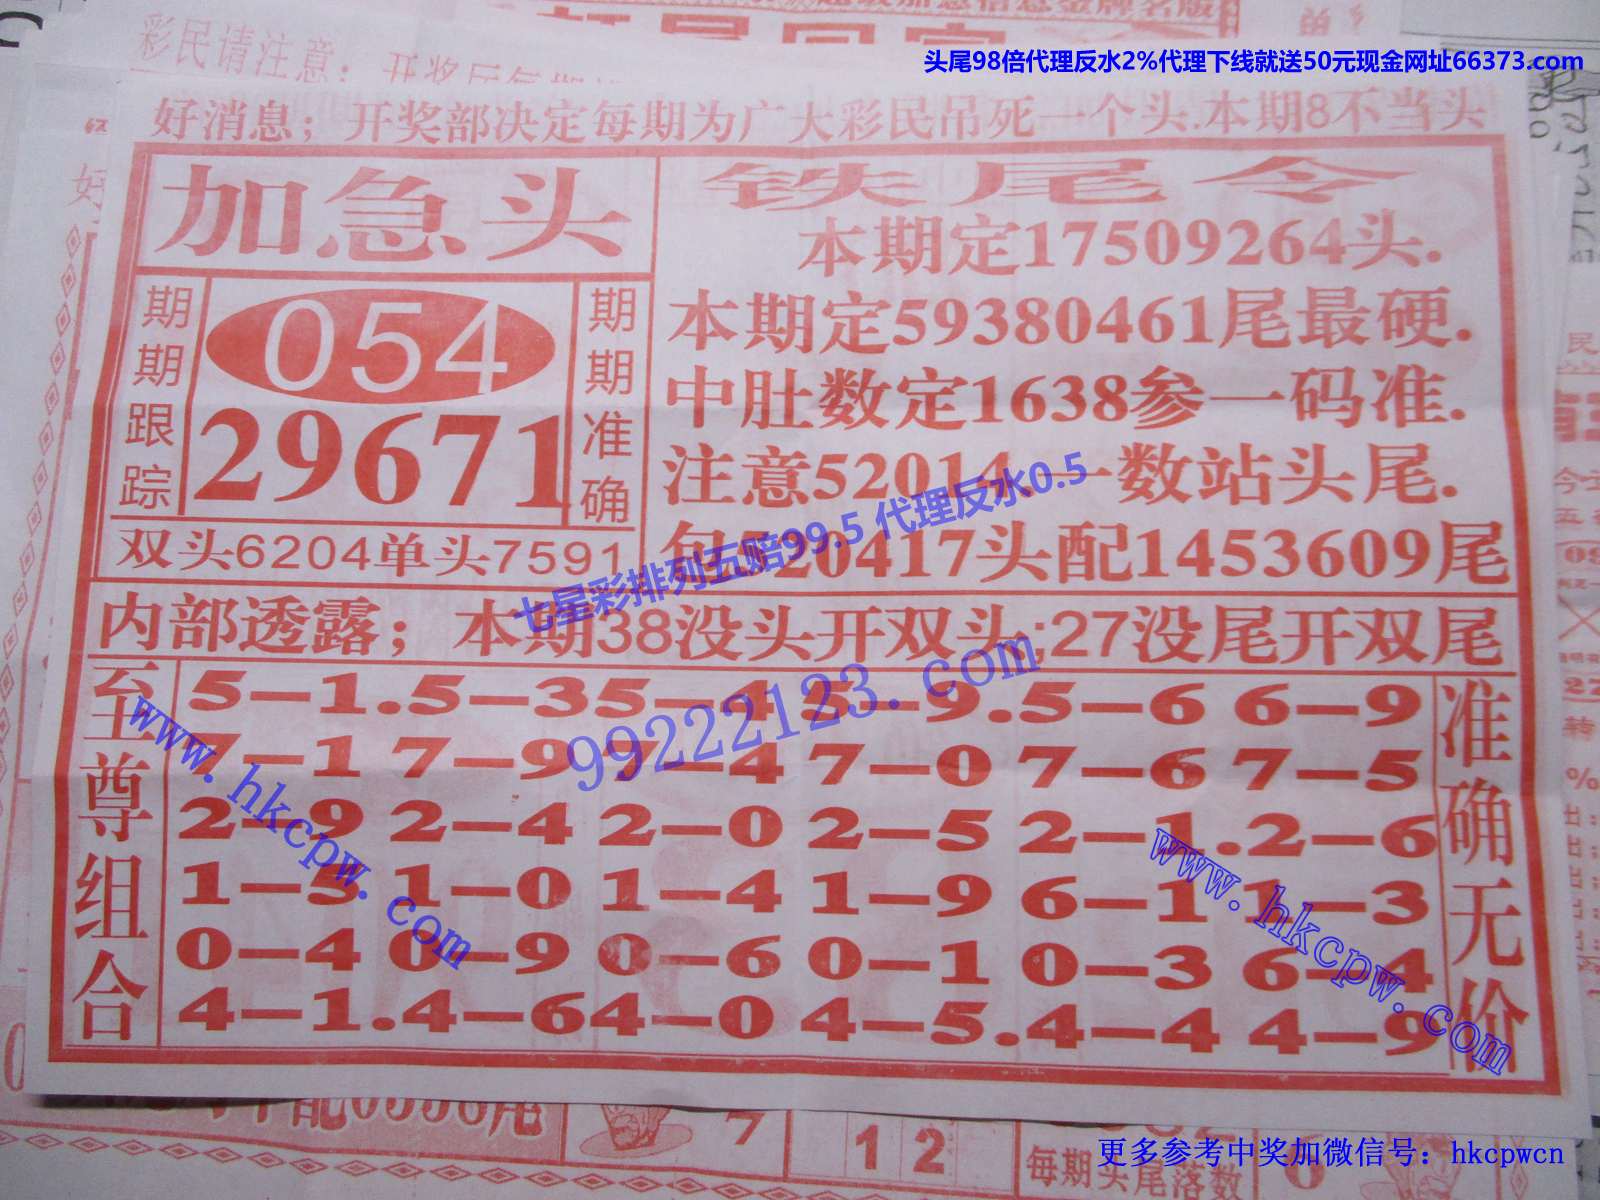 头尾98倍代理反水2%代理下线就送50元现金网址66373.com
彩民请注意:
好消息;开奖部决定每期为广大彩民吊死一个头.本期8不当头
加急头
期期跟踪
054
29671
期期准确
双头6204单头7591
铁尾令
本期定17509264头.
本期定59380461尾最硬.
中肚数定1638参一码准.
注意52014.一数站头尾.
包520417头配1453609尾
七星彩排列五赔99.5 代理反水0.5
内部透露;本期38没头开双头;27没尾开双尾
99222123.com
至尊组合
5-1.5-35-4 5-9.5-6 6-9
7-1 7-9 7-4 7-0 7-6 7-5
2-9 2-4 2-0 2-5 2-1.2-6
1-5 1-0 1-4 1-9 6-1 1-3
0-4 0-9 0-6 0-1 0-3 6-4
4-1.4-64-0 4-5.4-4 4-9
准确无价
www.hkcpw.com
www.hkcpw.com
7
12
每期头尾落数
更多参考中奖加微信号：hkcpwcn